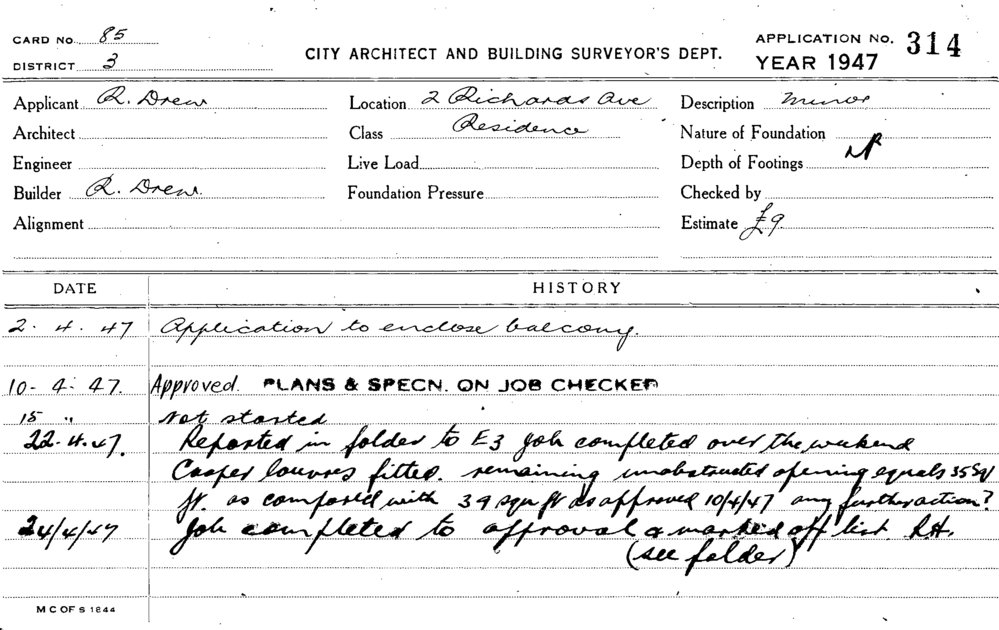 CARD No. 85
DISTRICT 3
CITY ARCHITECT AND BUILDING SURVEYOR'S DEPT.
APPLICATION No. 314
YEAR 1947
Applicant R. Drew
Location 2 Richards Ave
Description Minor
Architect
Class Residence
Nature of Foundation
Engineer
Live Load
Depth of Footings
Builder R. Drew.
Foundation Pressure
Checked by
Alignment
Estimate £9
DATE HISTORY
2. 4. 47 Application to enclose balcony.
10- 4- 47. Approved. PLANS & SPECN. ON JOB CHECKED
15 " Not started
22.4.47. Reported in folder to E3 job completed over the weekend
Cooper louvres fitted. remaining unobstructed opening equals 35 Sq
ft. as compared with 39 sqr ft as approved 10/4/47 any further action?
24/4/47 Job completed to approval & marked off list.
(see folder)
M C OF S 1844